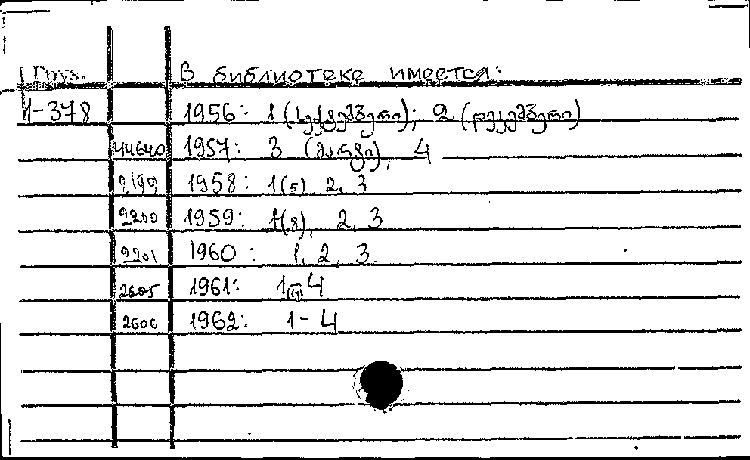 Груз. В библиотеке имеется:
1-378 1956: 1 (სექტემბერი); 2 (დეკემბერი)
44640 1957: 3 (მარტი), 4
2199 1958: 1(5) 2, 3
2200 1959: 1(8), 2, 3
2201 1960: 1, 2, 3
2605 1961: 1-4
2606 1962: 1-4